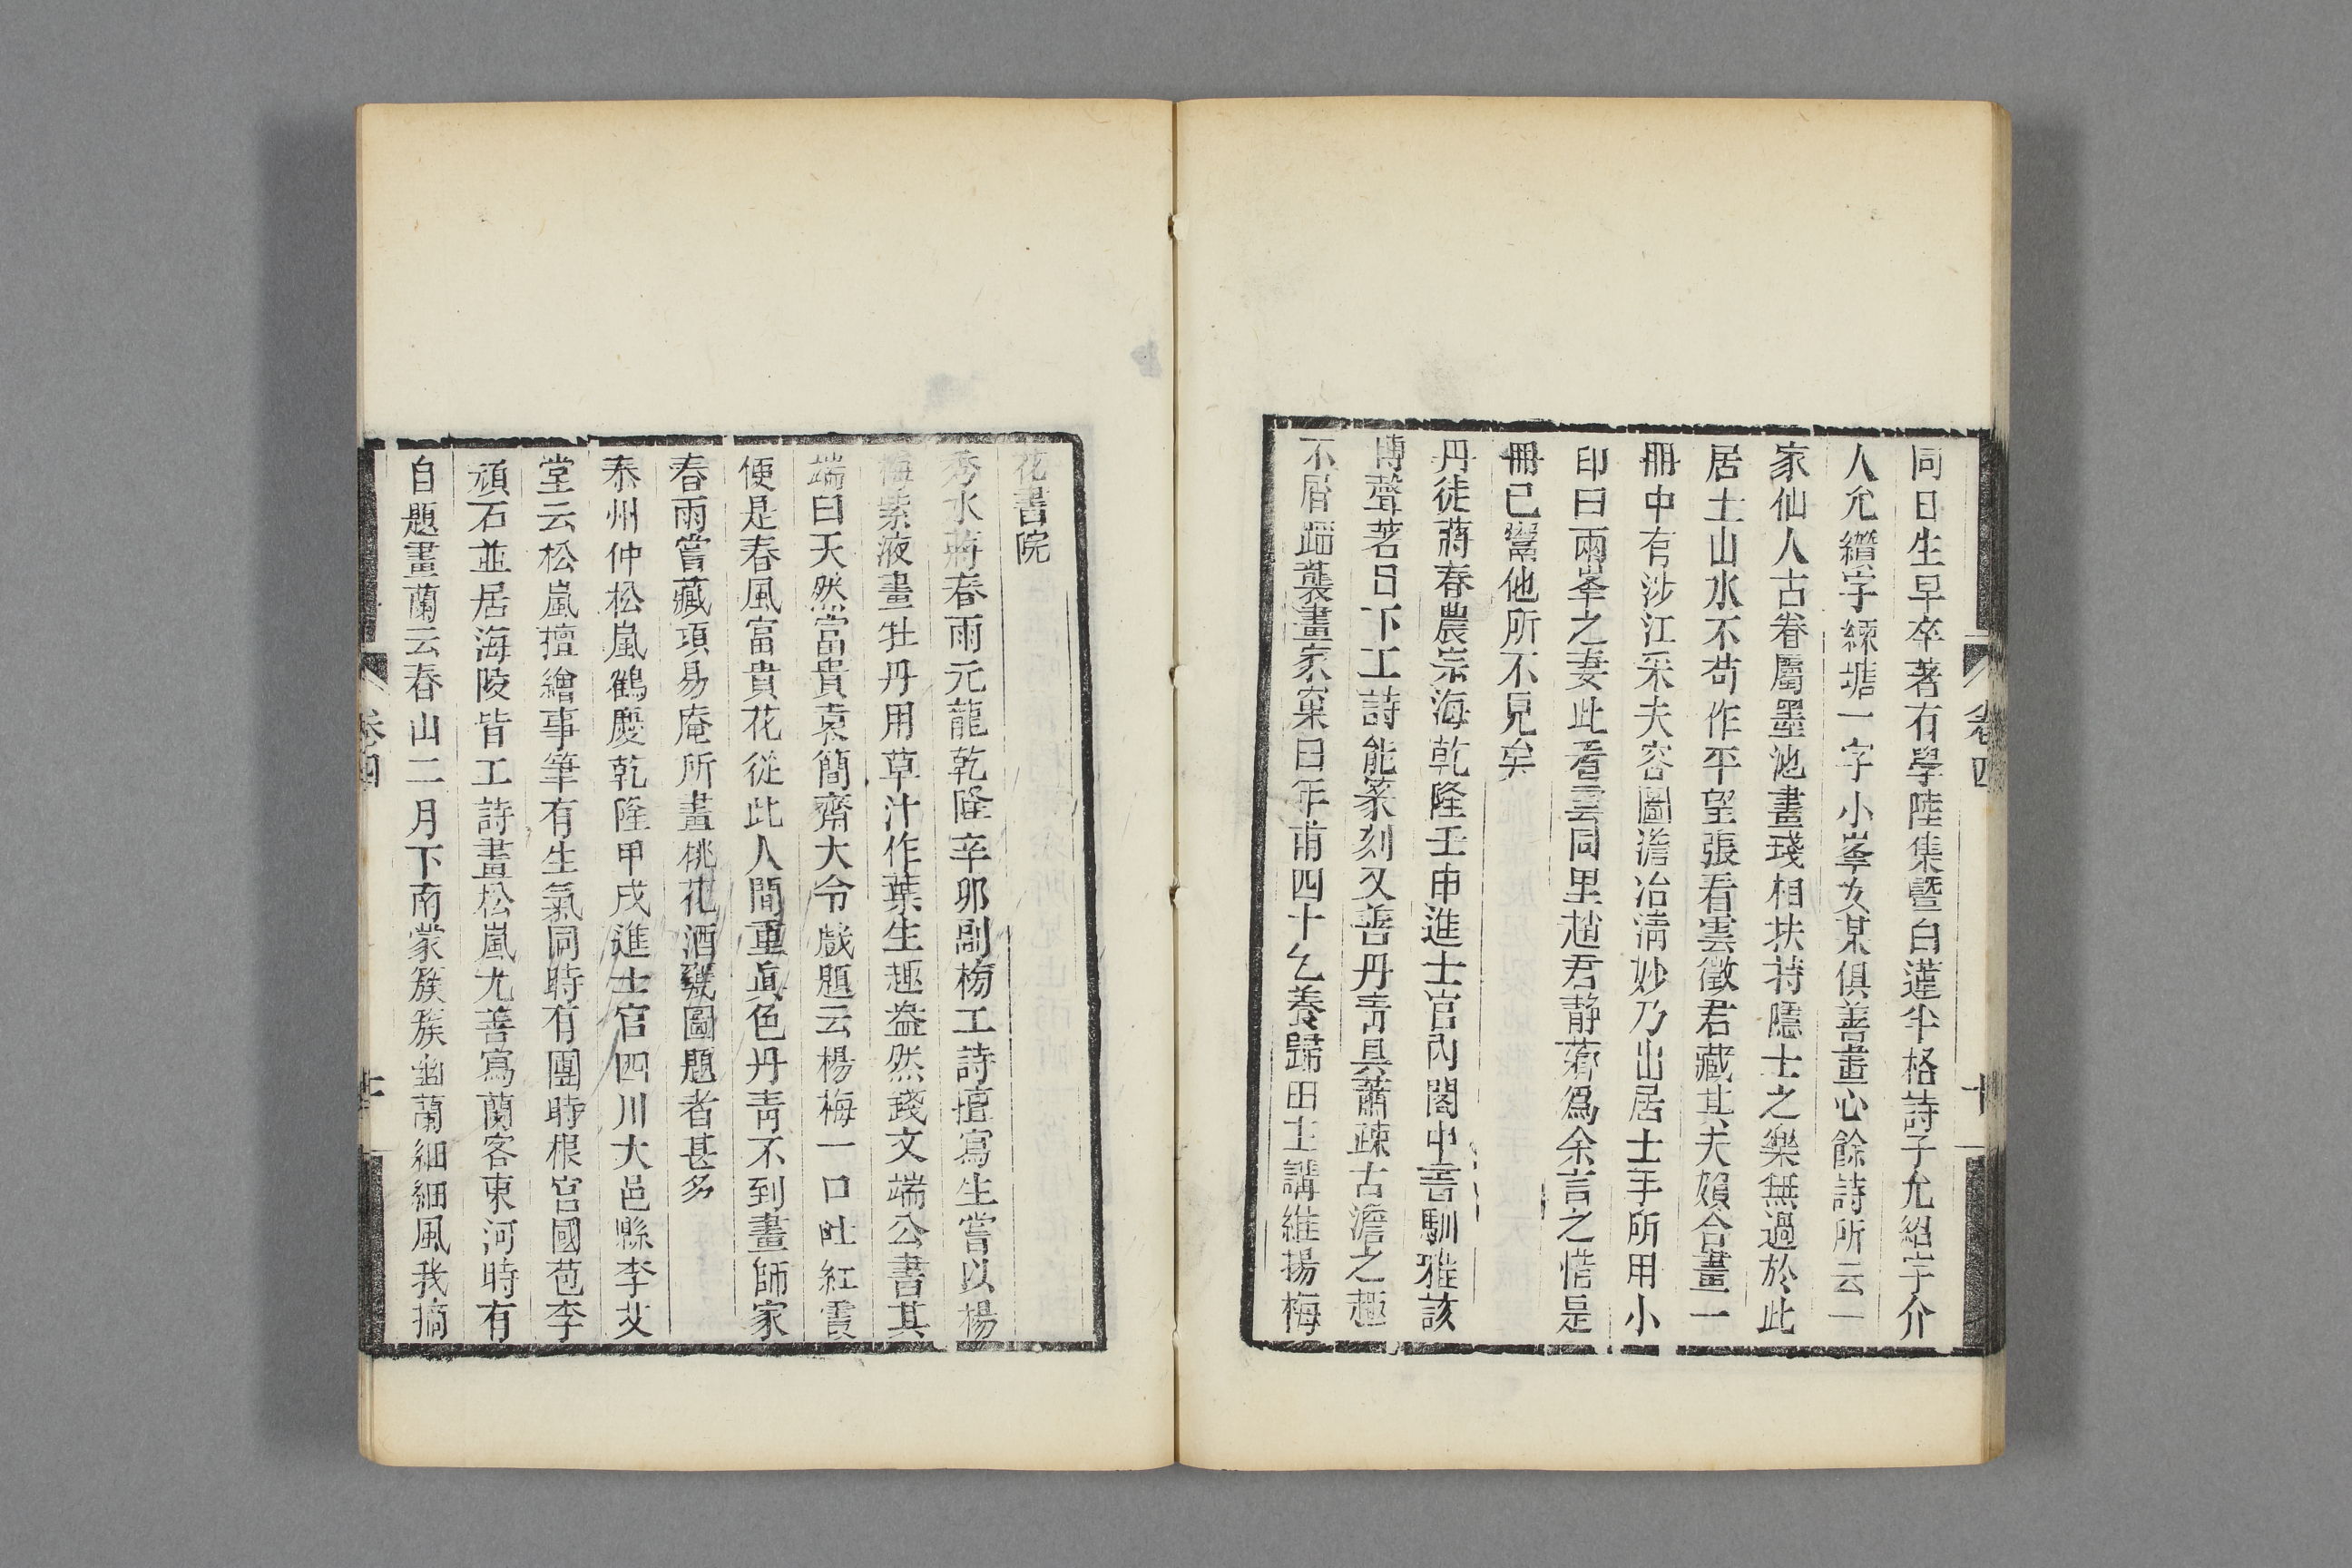 卷四
十
同日生早卒著有學陸集暨白蓮半格詩子允紹字介
人允纘字練塘一字小峯女某俱善畫心餘詩所云一
家仙人古眷屬墨池畫琖相扶持隱士之樂無過於此
居士山水不苟作平望張看雲徵君藏其夫婦合畫一
冊中有涉江采夫容圖澹冶清妙乃山居士手所用小
印曰兩峯之妻此看雲同里趙君靜薌爲余言之惜是
冊已鬻他所不見矣
丹徒蔣春農宗海乾隆壬申進士官內閣中書馴雅該
博聲著日下工詩能篆刻又善丹靑具蕭疎古澹之趣
不屑蹈襲畫家窠臼年甫四十乞養歸田主講維揚梅
花書院
秀水蔣春雨元龍乾隆辛卯副榜工詩擅寫生嘗以楊
梅紫液畫牡丹用草汁作葉生趣盎然錢文端公書其
端曰天然富貴袁簡齋大令戲題云楊梅一口吐紅霞
便是春風富貴花從此人間重眞色丹靑不到畫師家
春雨嘗藏項易庵所畫桃花酒甕圖題者甚多
泰州仲松嵐鶴慶乾隆甲戌進士官四川大邑縣李艾
堂云松嵐擅繪事筆有生氣同時有團時根宮國苞李
頑石並居海陵皆工詩畫松嵐尤善寫蘭客東河時有
自題畫蘭云春山二月下南蒙簇簇幽蘭細細風我摘
卷四